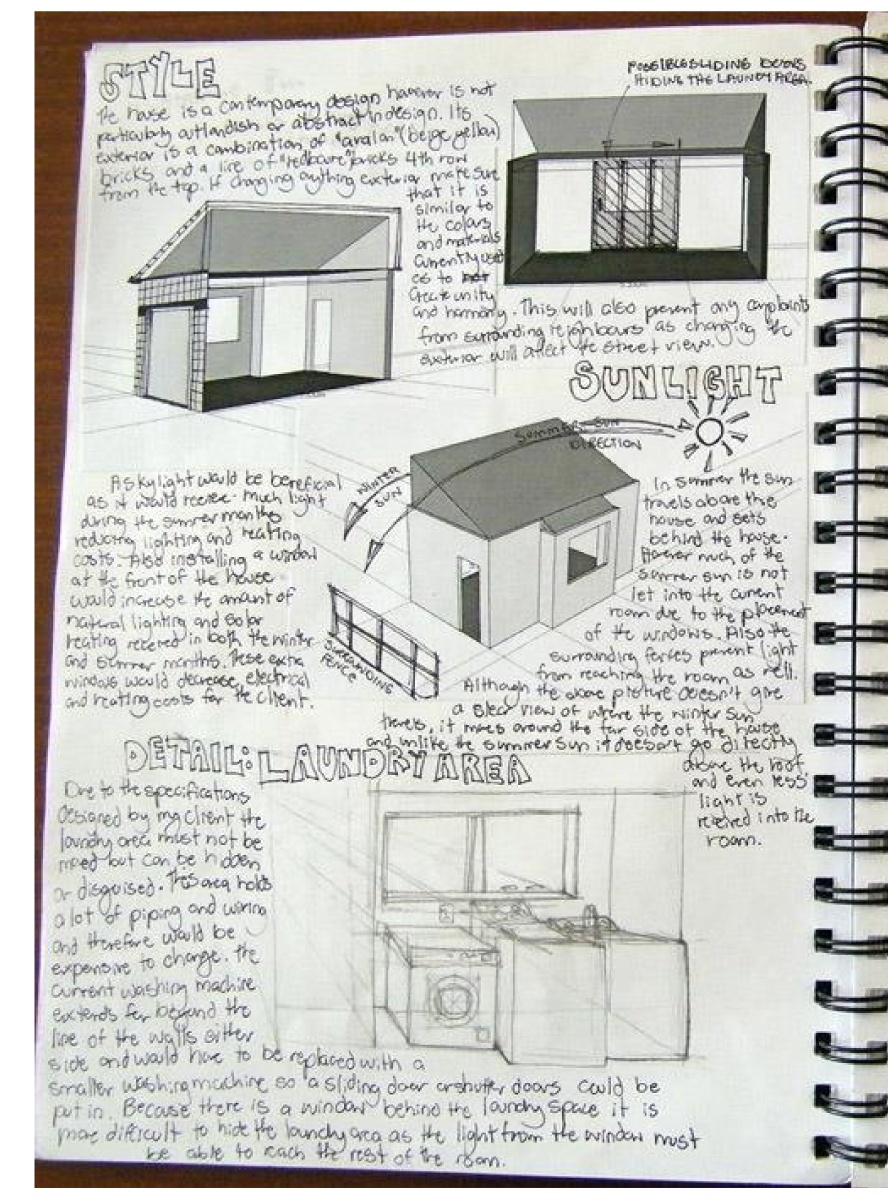 STYLE
The house is a contemporary design however is not
particularly outlandish or abstract in design. Its
exterior is a combination of "avalon" (beige yellow)
bricks and a line of bricks 4th row
from the top. If changing anything exterior make sure
that it is
similar to
the colours
and materials
currently used
as to not
create unity
and harmony. This will also prevent any complaints
from surrounding neighbours as changing the
exterior will affect the street view.
POSSIBLE SLIDING DOORS
HIDING THE LAUNDY AREA.
SUNLIGHT
SUMMER SUN
DIRECTION
WINTER
SUN
SURROUNDING
FENCE
A skylight would be beneficial
as it would receive much light
during the summer months
reducing lighting and heating
costs. Also installing a window
at the front of the house
would increase the amount of
natural lighting and solar
heating received in both the winter
and summer months. These extra
windows would decrease electrical
and heating costs for the client.
In summer the sun
travels above the
house and sets
behind the house.
However much of the
summer sun is not
let into the current
room due to the placement
of the windows. Also the
surrounding fences prevent light
from reaching the room as well.
Although the above picture doesn't give
a clear view of where the winter sun
travels, it moves around the far side of the house
and unlike the summer sun it doesn't go directly
above the roof
and even less
light is
received into the
room.
DETAIL: LAUNDRY AREA
Due to the specifications
designed by my client the
laundry area must not be
moved but can be hidden
or disguised. This area holds
a lot of piping and wiring
and therefore would be
expensive to change. The
current washing machine
extends far beyond the
line of the walls either
side and would have to be replaced with a
smaller washing machine so a sliding door or shutter doors could be
put in. Because there is a window behind the laundry space it is
more difficult to hide the laundry area as the light from the window must
be able to reach the rest of the room.